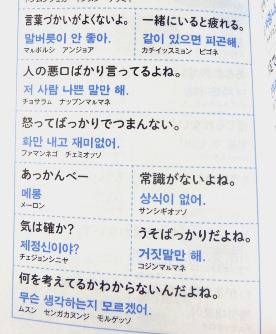 言葉づかいがよくないよ。
말버릇이 안 좋아.
マルボルシ アンジョア
一緒にいると疲れる。
같이 있으면 피곤해.
カチイッスミョン ピゴネ
人の悪口ばかり言ってるよね。
저 사람 나쁜 말만 해.
チョサラム ナップンマルマネ
怒ってばっかりでつまんない。
화만 내고 재미없어.
ファマンネゴ チェミオッソ
あっかんべー
메롱
メーロン
常識がないよね。
상식이 없어.
サンシギオッソ
気は確か？
제정신이야?
チェジョンシニヤ
うそばっかりだよね。
거짓말만 해.
コジンマルマネ
何を考えてるかわからないんだよね。
무슨 생각하는지 모르겠어.
ムスン センガカヌンジ モルゲッソ